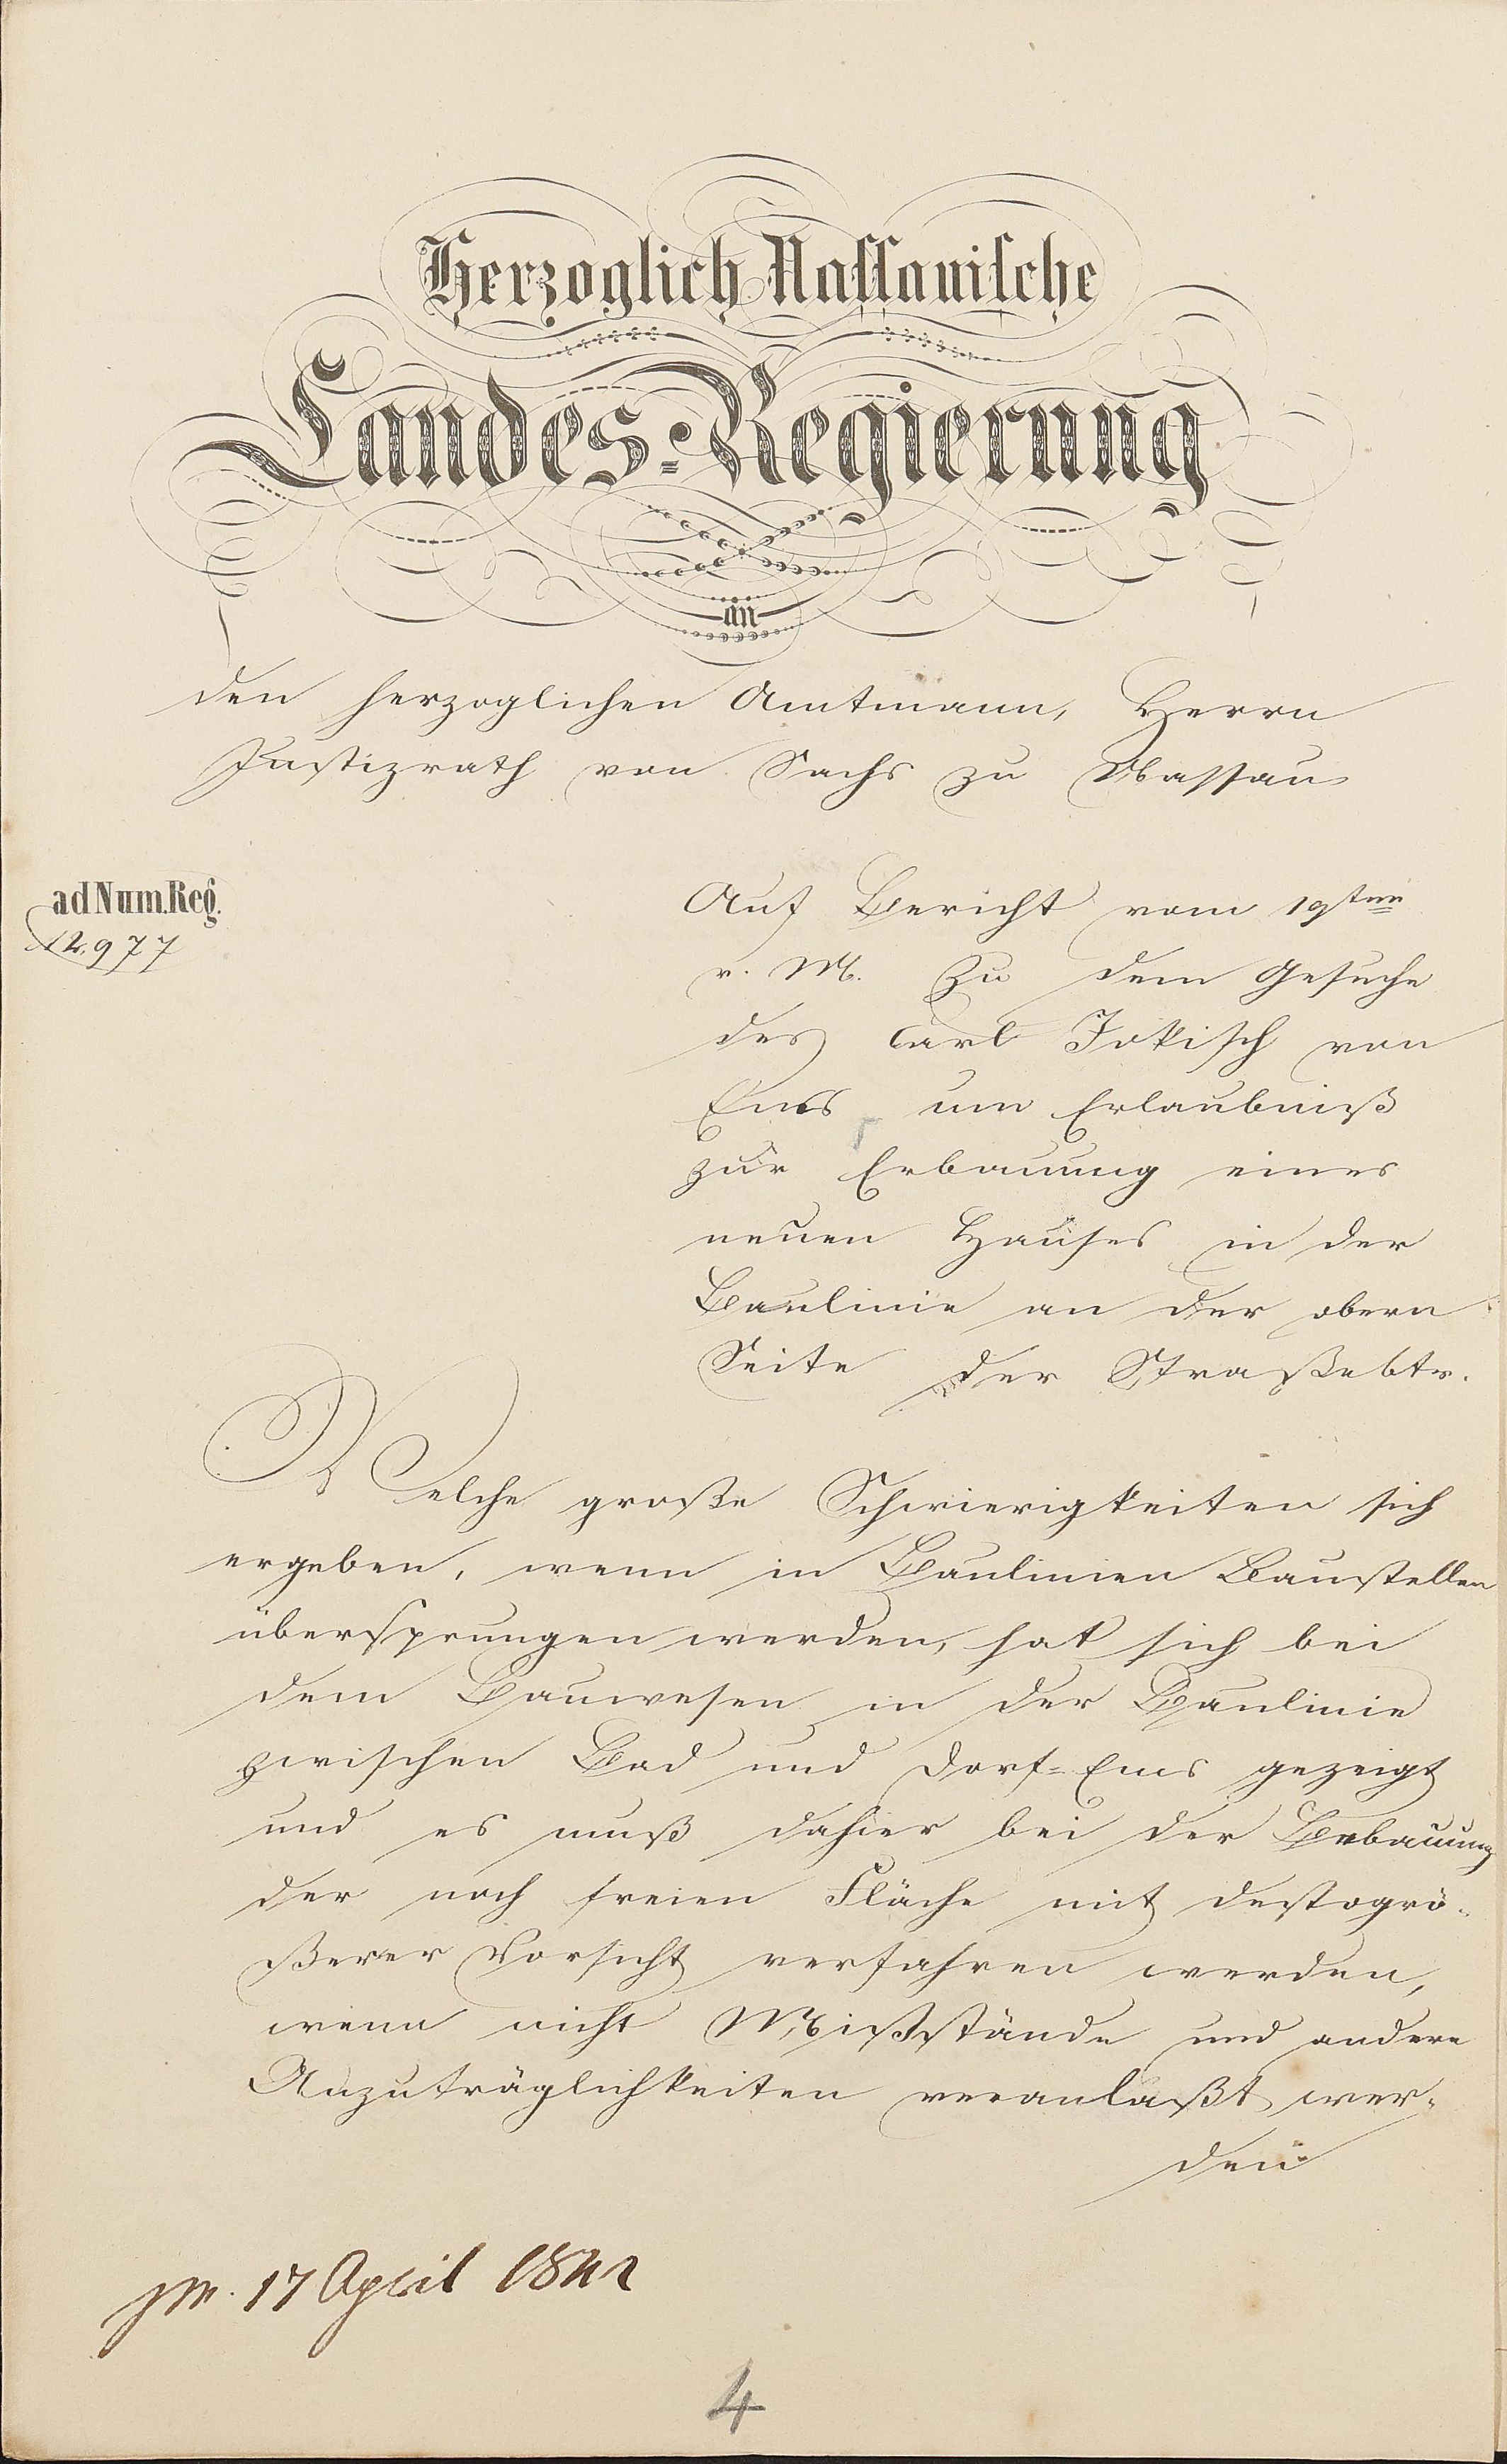 Herzoglich Nassauische
Landes-Regierung
an
den herzoglichen Amtmann, Herrn
Justizrath von Sachs zu Nassau
ad Num. Reg.
12,977
Auf Bericht vom 19ten
v. M. Zu dem Gesuche
des Carl Jokisch von
Ems um Erlaubniß
zur Erbauung eines
neuen Hauses in der
Baulinie an der obern
Seite der Straße btr.
Welche große Schwierigkeiten sich
ergeben, wenn in Baulinien Baustellen
übersprungen werden, hat sich bei
dem Bauwesen in der Baulinie
zwischen Bad und Dorf-Ems gezeigt
und es muß dahier bei der Bebauung
der noch freien Fläche mit destogrö-
ßerer Vorsicht verfahren werden,
wenn nicht Mißstände und andere
Unzuträglichkeiten veranlaßt wer-
den
pm. 17 April 1842
4